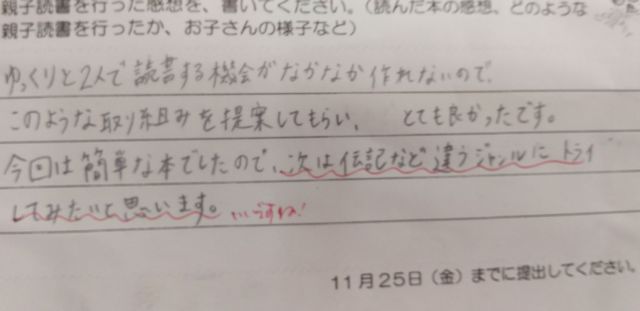 親子読書を行った感想を、書いてください。（読んだ本の感想、どのような
親子読書を行ったか、お子さんの様子など）
ゆっくりと2人で読書する機会がなかなか作れないので、
このような取り組みを提案してもらい、とても良かったです。
今回は簡単な本でしたので、次は伝記など違うジャンルにトライ
してみたいと思います。いいですね!
11月25日（金）までに提出してください。